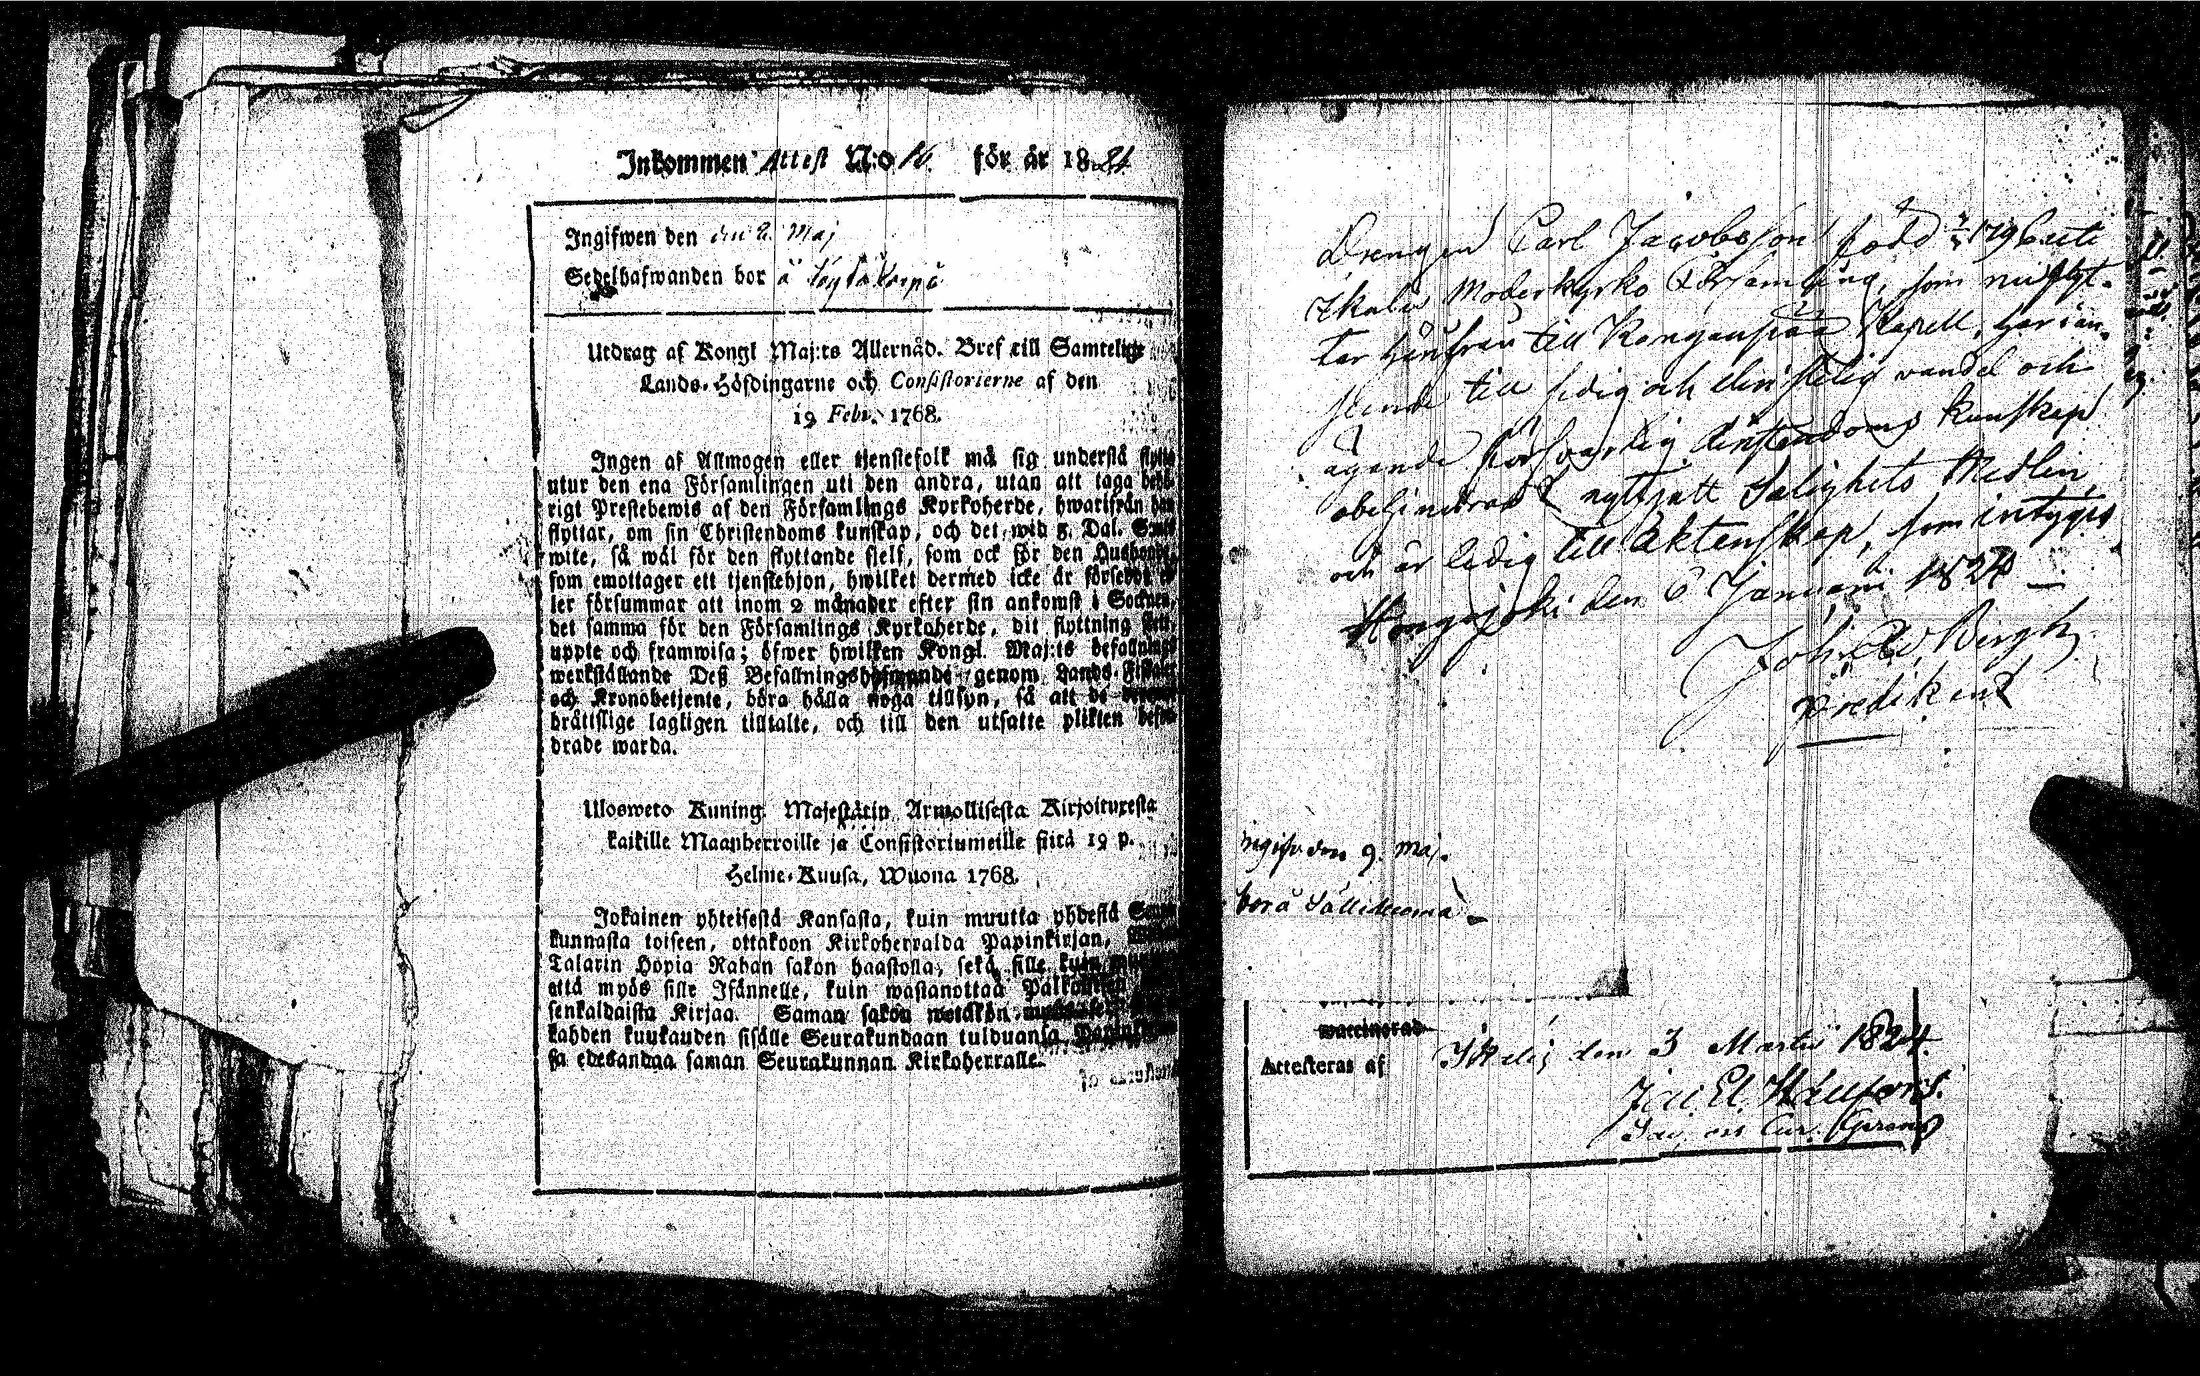 Inkommen Attest N:o 16. för år 1824.
Ingifwen den den 2. Maj
Sedelhafwanden bor å
Utdrag af Kongl Maj:ts Allernåd. Bref till Samtelige
Lands-Höfdingarne och Consistorierne af den
19 Febr. 1768.
Ingen af Allmogen eller tjenstefolk må sig understå flytta
utur den ena Församlingen uti den andra, utan att taga behö-
rigt Prestebewis af den Församlings Kyrkoherde, hwarifrån han
flyttar, om sin Christendoms kunskap, och det wid 5. Dal. S:mts
wite, så wäl för den flyttande sjelf, som ock för den Husbonde,
som emottager ett tjenstehjon, hwilket dermed icke är försedt el-
ler försummar att inom 2 månader efter sin ankomst i Socknen,
det samma för den Församlings Kyrkoherde, dit flyttning sker,
uppte och framwisa; öfwer hwilken Kongl. Maj:ts befallning
werkställande Deß Befallningshafwande genom Lands-Fiskaler
och Kronobetjente, böra hålla noga tillsyn, så att de
brättslige lagligen tilltalte, och till den utsatte plikten befor-
drade warda.
Ulosweto Kuning. Majestätin Armollisesta Kirjoituxesta
kaikille Maanherroille ja Consistoriumeille siitä 19 p.
Helme-Kuusa, Wuona 1768.
Jokainen yhteisestä Kansasta, kuin muutta yhdestä Seura-
kunnasta toiseen, ottakoon Kirkoherralda Papinkirjan,
Talarin Hopia Rahan sakon haastolla, sekä sille kuin
että myös sille Isännelle, kuin wastanottaa
senkaldaista Kirjaa. Saman sakon wetäkön
kahden kuukauden sisälle Seurakundaan tulduansa
sa edesandaa saman Seurakunnan Kirkoherralle.
Drengen Carl Jacobsson född 1796 uti
Ikalis Moderkyrko Församling, som nu flyt-
tar härifrån till Kapell, har
till sedig och christelig vandel och
ägande försvarlig christendoms kunskap
obehindrad nyttjatt Salighets Medlen
och är ledig till Äktenskap, som intygas
Hongojoki den 6 Januari 1824
Joh. Bergh
Predikant
ingifv den 9. Maj.
bor å
waccinerad
Attesteras af Ikalis den 3 Martii 1824.